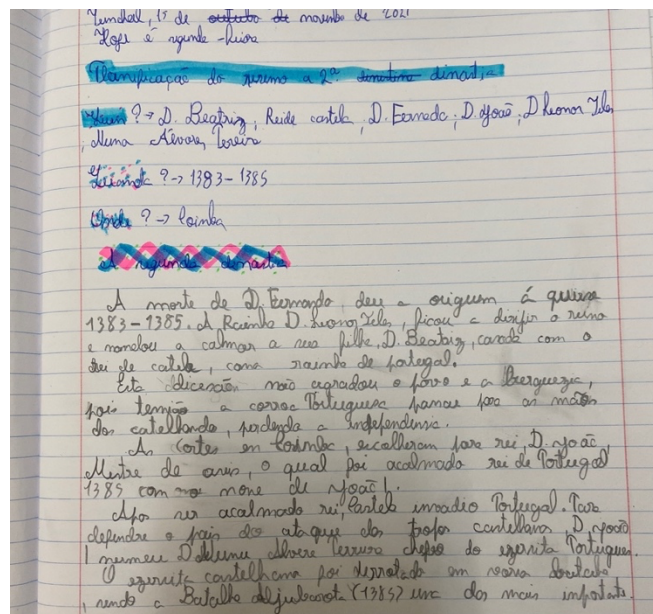 Funchal, 15 de outubro de novembro de 2021
Hoje é segunda-feira
Planificação do resumo a 2ª dinastia
Quem ? → D. Beatriz, Rei de castela, D. Fernado, D. João, D Leonor Teles
, Nuno Álvares Pereira
? → 1383-1385
Onde ? → Coimba
A segunda dinastia
A morte de D. Fernando, deu a origem á guerra
1383-1385. A Rainha D. Leonor Teles, ficou a dirifir o reino
e mandou a calmar a sua filha, D. Beatriz, casada com o
rei de catela, como rainha de portugal.
Esta dicisão não agradou o povo e a Burguezia,
pois temião a coroa Portuguesa passar para as mãos
dos catellando, perdendo a independensa.
As Cortes em Coimba, escolheram para rei, D. João,
Mestre de avis, o qual foi acalmado rei de Portugal
1385 com no mone de João I.
Apos ser acalmado rei, Castela invadio Portugal. Para
defender o pais do ataque das tropas cantelhana, D. João
I numeu D. Nuno Alvere Perrura chefe do exersita Portugues.
O exersita cantelhana foi derrotado em varia batalha
, sendo a Batalha Aljubarota (1385) uma das mais importante.